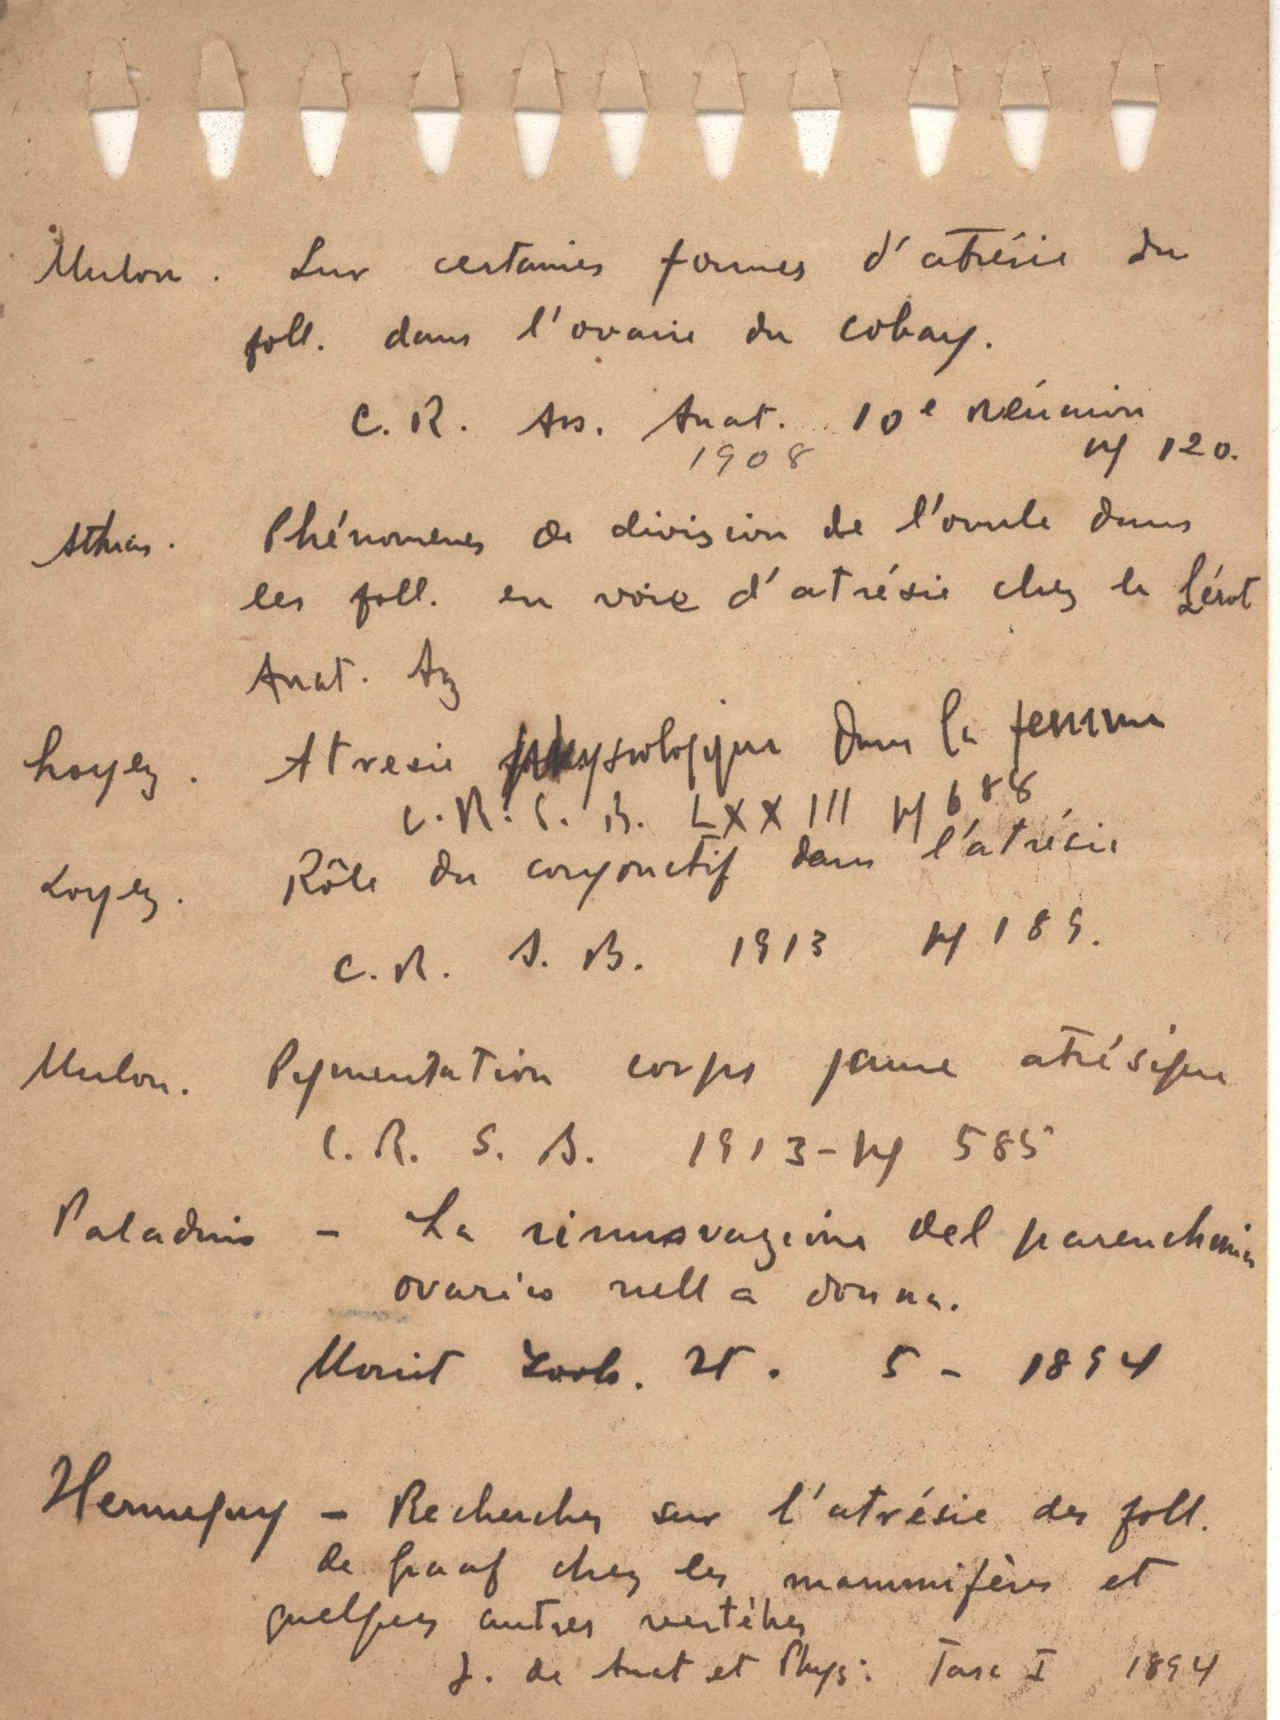 Mulon. Sur certaines formes d'atrésie du
foll. dans l'ovaire du cobay.
C. R. Ass. Anat. 10e Réunion
1908 pg 120.
Athias. Phénomenes de division de l'ovule dans
les foll. en voie d'atrésie chez le Lérot
Anat. Az
Loyez. Atresie physiologique dans la femme
C. R. S. B. LXXIII pg 688
Loyez. Rôle du conjonctif dans l'atrésie
C. R. S. B. 1913 pg 189.
Mulon. Pigmentation corps jaune atrésique
C. R. S. B. 1913 - pg 585
Paladino - La rinnovazione del parenchimo
ovarico nella donna.
Monit Zool. It. 5 - 1894
Henneguy - Recherches sur l'atrésie des foll.
de Graaf chez les mammifères et
quelques autres vertébres
J. de Anat et Phys. Fasc I 1894